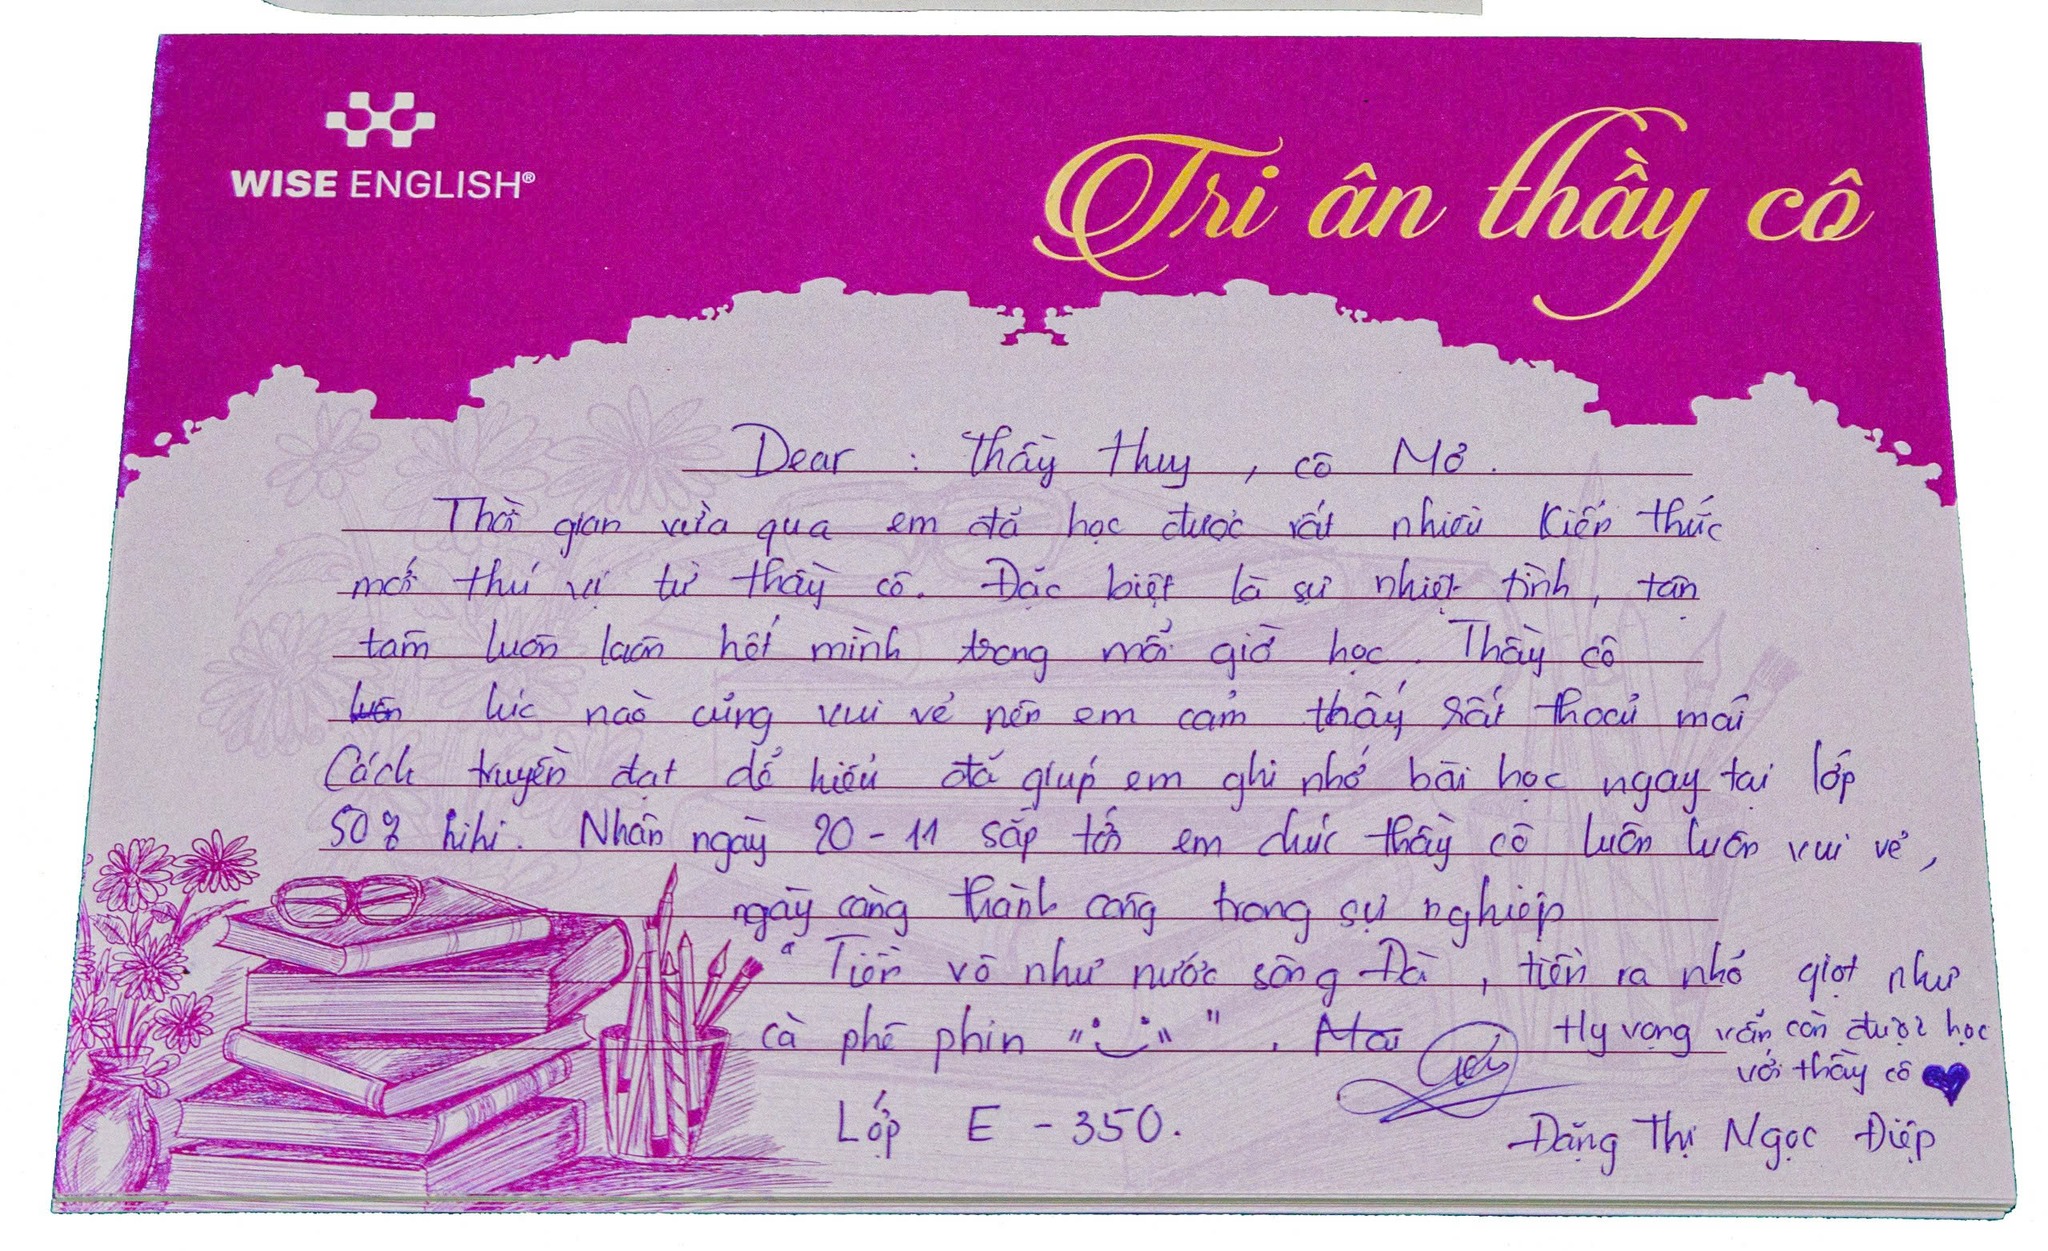 WISE ENGLISH®
Tri ân thầy cô
Dear : thầy thuy , cô Mơ .
Thời gian vừa qua em đã học được rất nhiều kiến thức
mới thú vị từ thầy cô. Đặc biệt là sự nhiệt tình, tận
tâm luôn luôn hết mình trong mỗi giờ học. Thầy cô
luôn lúc nào cũng vui vẻ nên em cảm thấy rất thoải mái
Cách truyền đạt dể hiểu đã giúp em ghi nhớ bài học ngay tại lớp
50% hihi. Nhân ngày 20-11 sắp tới em chúc thầy cô luôn luôn vui vẻ,
ngày càng thành công trong sự nghiệp
" Tiền vô như nước sông Đà , tiền ra nhỏ giọt như
cà phê phin " .
Hy vọng vẫn còn được học
với thầy cô
Lớp E - 350.
Đặng Thị Ngọc Điệp